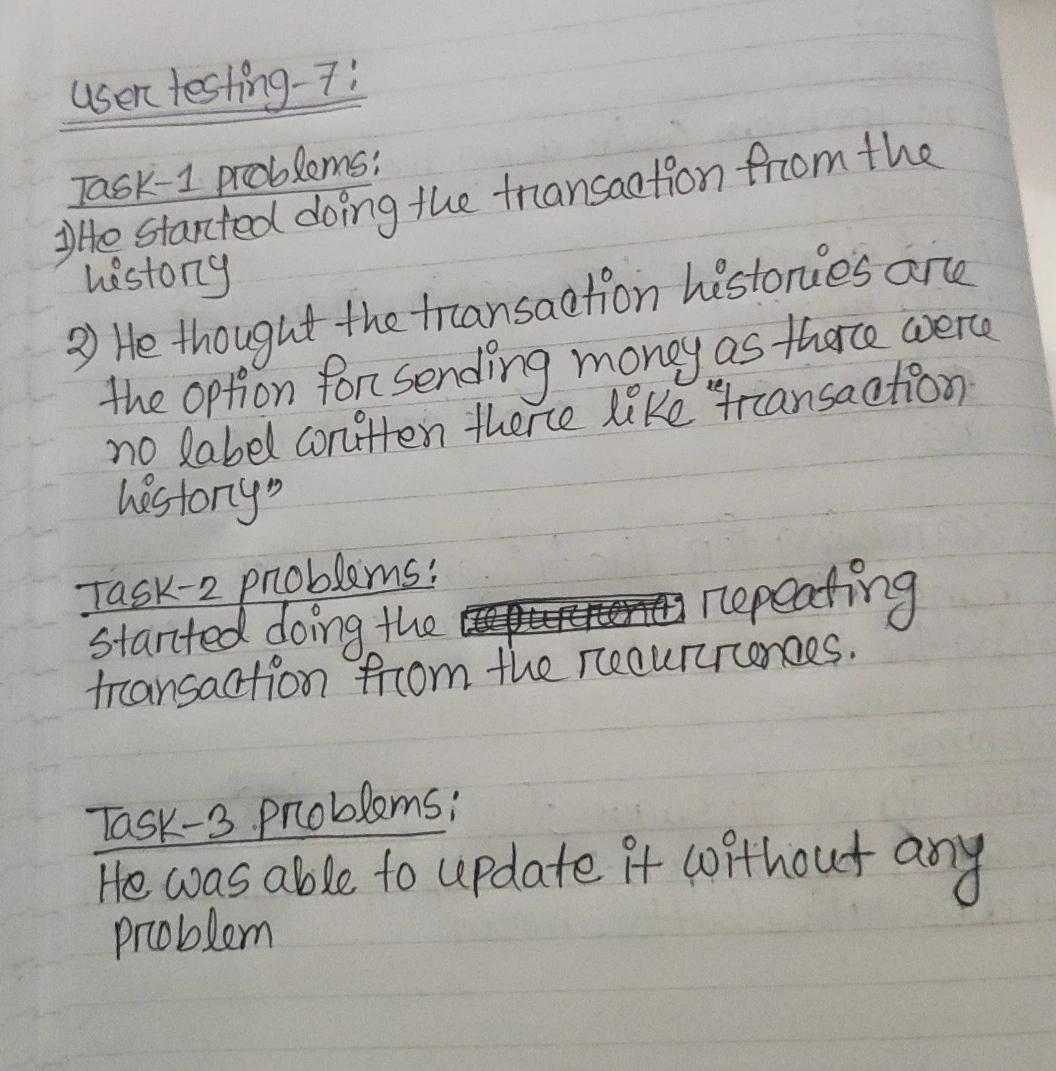 User testing-7:
Task-1 problems:
1) He started doing the transaction from the
history
2) He thought the transaction histories are
the option for sending money as there were
no label written there like "transaction
history"
Task-2 problems:
Started doing the repeating
transaction from the recurrences.
Task-3 problems:
He was able to update it without any
problem